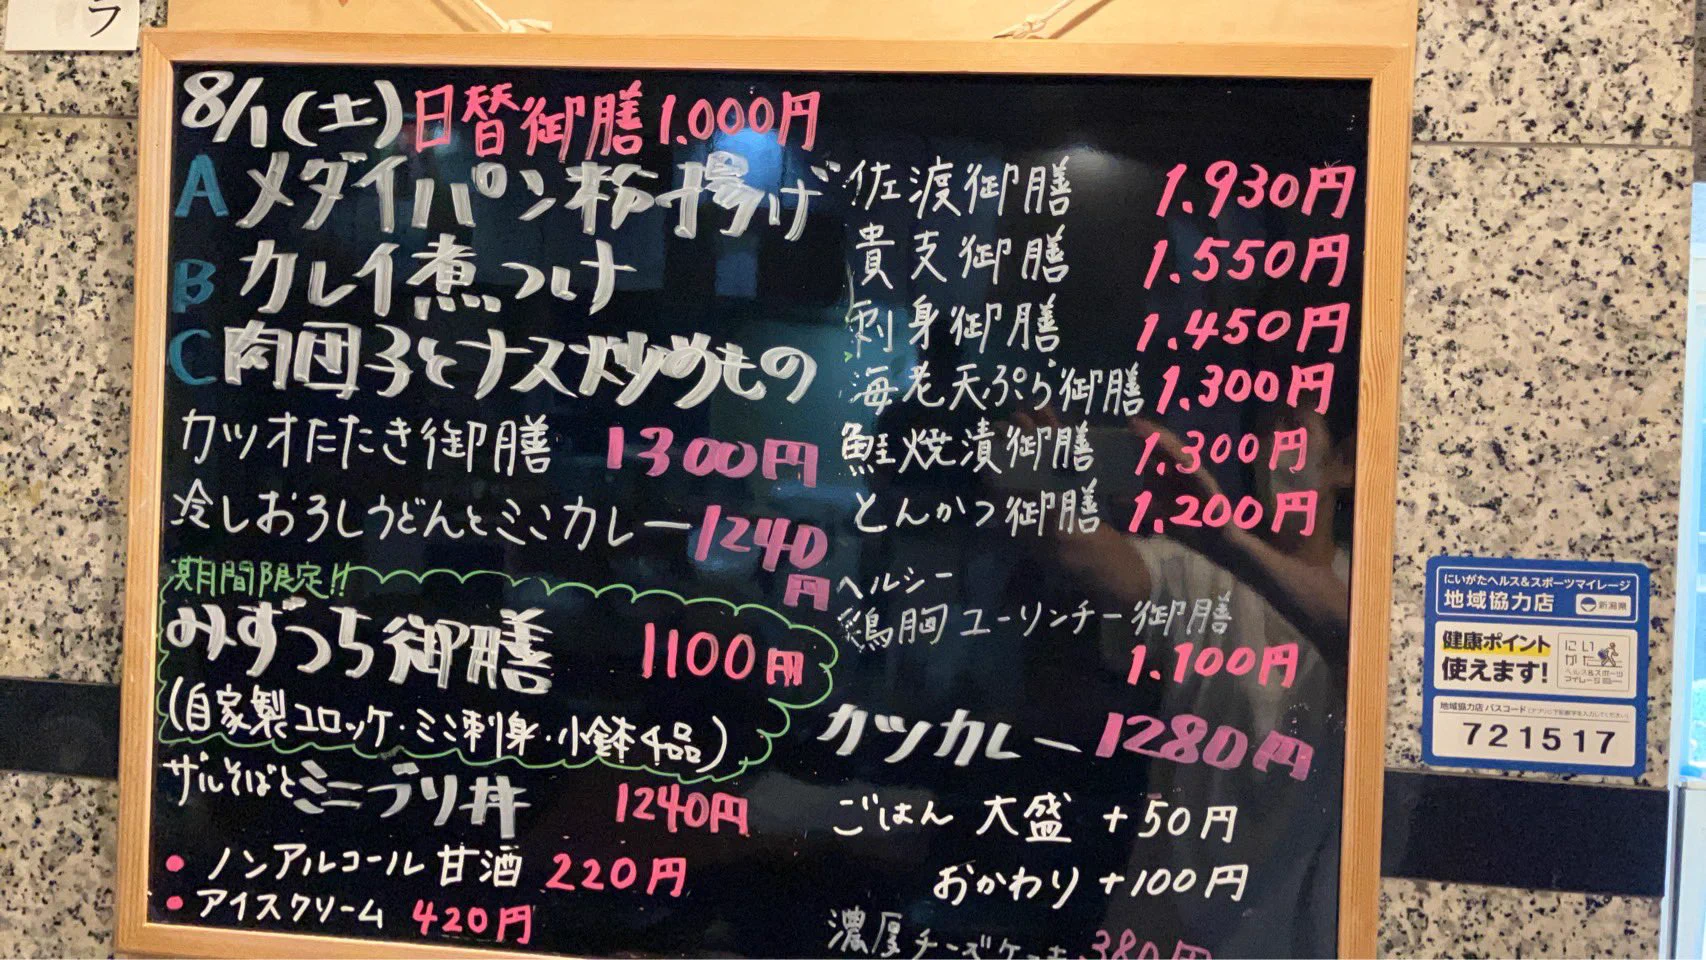 ラ
8/1(土)日替御膳1.000円
A メダイパン粉揚げ
B カレイ煮つけ
C 肉団子とナス炒めもの
カツオたたき御膳 1300円
冷しおろしうどんとミニカレー1240円
期間限定!!
みずつち御膳 1100円
(自家製コロッケ・ミニ刺身・小鉢4品)
ザルそばとミニブリ丼 1240円
・ノンアルコール甘酒 220円
・アイスクリーム 420円
佐渡御膳 1.930円
貴支御膳 1.550円
刺身御膳 1.450円
海老天ぷら御膳 1.300円
鮭焼漬御膳 1.300円
とんかつ御膳 1.200円
ヘルシー
鶏胸ユーリンチー御膳
1.100円
カツカレー 1280円
ごはん 大盛 +50円
おかわり +100円
濃厚チーズケーキ 380円
にいがたヘルス&スポーツマイレージ
地域協力店 新潟県
健康ポイント
使えます!
にいがた
ヘルス&スポーツ
マイレージ
地域協力店 パスコード
721517